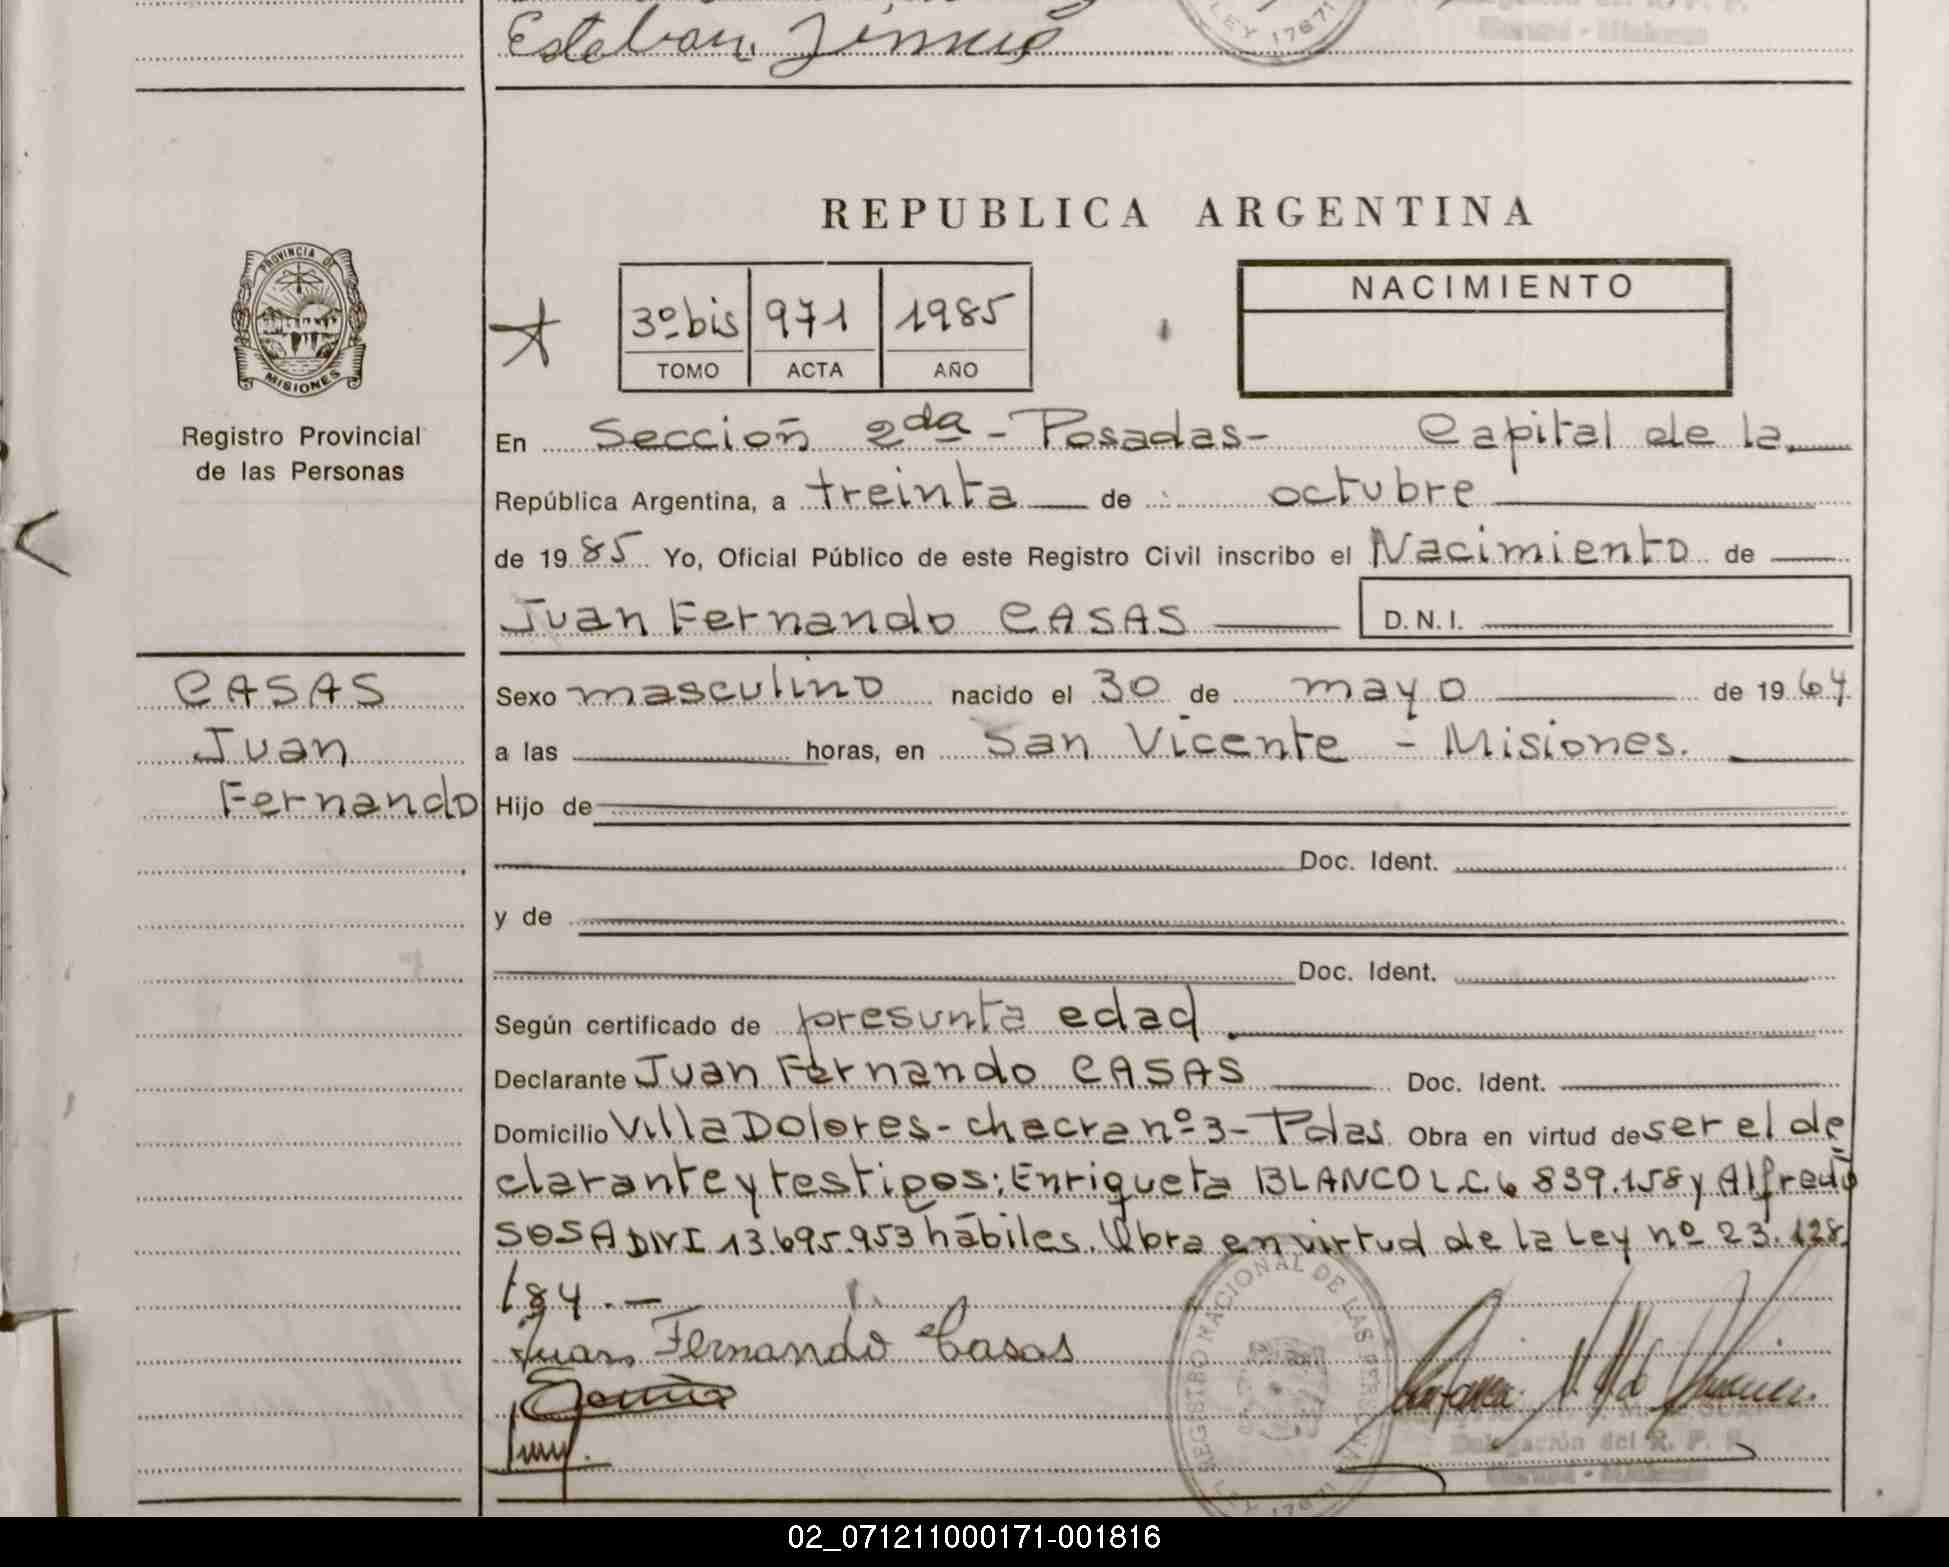 Esteban
LEY 17671
REPUBLICA ARGENTINA
PROVINCIA DE
MISIONES
Registro Provincial
de las Personas
3º bis 971 1985
TOMO ACTA AÑO
NACIMIENTO
En Sección 2da - Posadas - Capital de la
República Argentina, a treinta de octubre
de 1985 Yo, Oficial Público de este Registro Civil inscribo el Nacimiento de
Juan Fernando CASAS D.N.I.
CASAS
Juan
Fernando
Sexo masculino nacido el 30 de mayo de 1964
a las horas, en San Vicente - Misiones.
Hijo de
Doc. Ident.
y de
Doc. Ident.
Según certificado de presunta edad
Declarante Juan Fernando CASAS Doc. Ident.
Domicilio Villa Dolores - chacra nº 3 - Pdas. Obra en virtud de ser el de
clarante y testigos: Enriqueta BLANCO L.C. 6.839.158 y Alfredo
SOSA DNI 13.695.953 hábiles. Obra en virtud de la Ley nº 23.128
/84.-
Juan Fernando Casas
REGISTRO NACIONAL DE LAS PERSONAS
LEY 17671
Delegación del R. P. P.
02_071211000171-001816